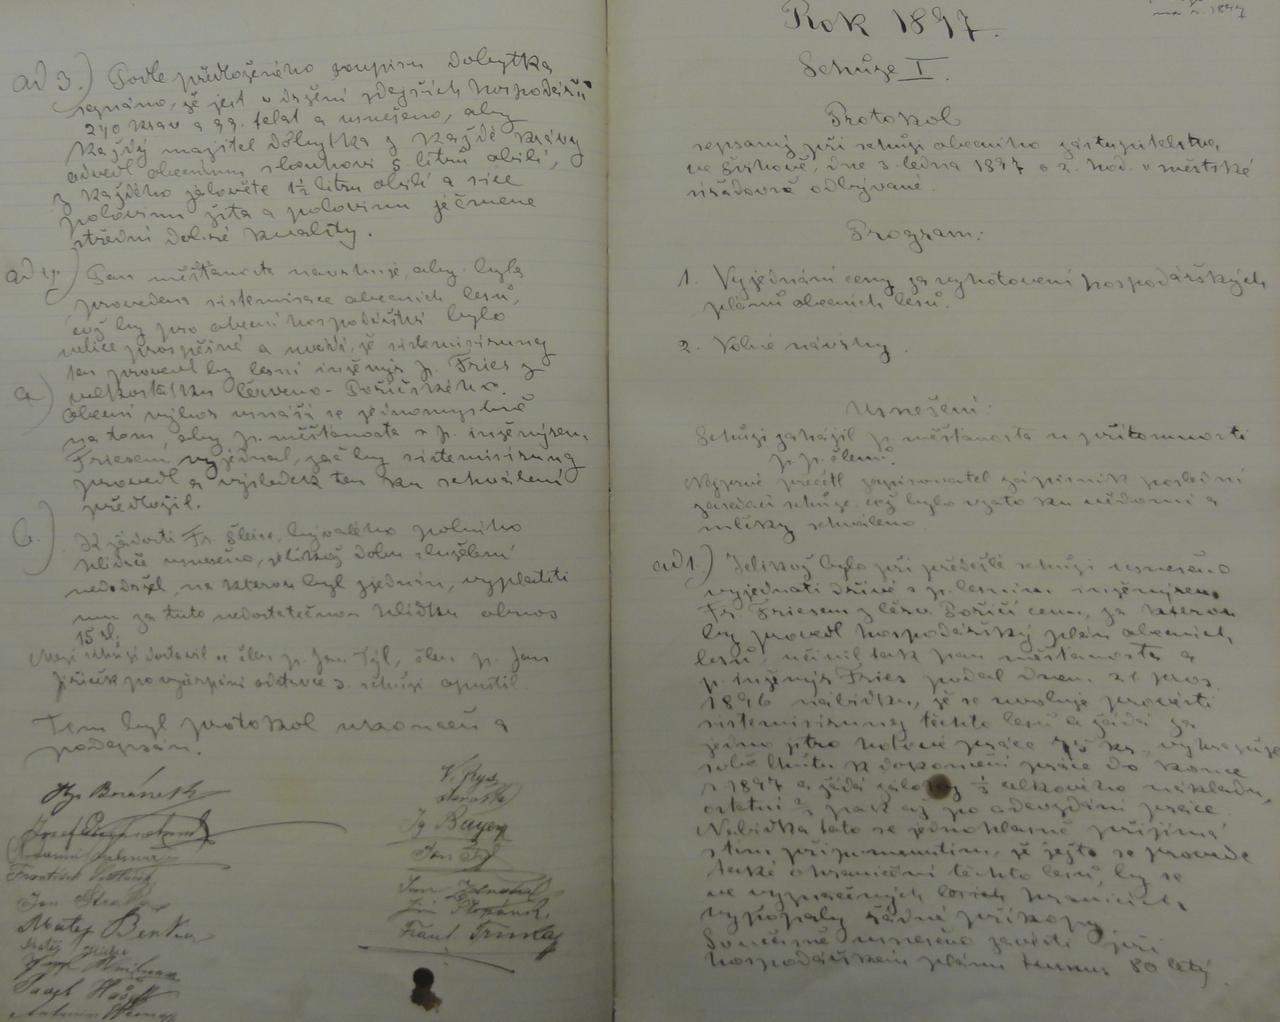 ad 3.) Podle předloženého soupisu dobytka
seznáno, že jest v držení zdejších hospodářů
240 krav a 99. telat a usneseno, aby
každý majitel dobytka z každé krávy
odvedl obecnímu slouhovi 8 litrů obilí,
z každého jalověte 1½ litru obilí a sice
polovinu žita a polovinu ječmene
střední dobré kvality.
ad 4.) Pan měšťanosta navrhuje, aby byla
provedena sistemisace obecních lesů,
což by pro obecní hospodářství bylo
velice prospěšné a uvádí, že sistemisirung
ten provedl by lesní inženýr p. Fries z
velkostatku Červeno-Poříčského.
a) Obecní výbor usnáší se jednomyslně
na tom, aby p. měšťanosta s p. inženýrem
Friesem vyjednal, zač by sistemisirung
provedl a výsledek ten ku schválení
předložil.
b.) K žádosti Fr. bývalého polního
hlídače usneseno, jelikož dobu službní
nedodržel, na kterou byl zjednán, vyplatiti
mu za tuto nedostatečnou hlídku obnos
15 zl.
Mezi schůzí dostavil se člen p. Jan Týl, člen p. Jan
Jiřičk po vyčerpání odstavce 3. schůzi opustil.
Tím byl protokol ukončen a
podepsán.
V. Ryd
starosta
Josef
Ig Bayer
Jan Týl
František
Jan
Jan
Matěj Benka
Matěj
Frant. Trnka
Josef
Antonín
Rok 1897.
Schůze I.
Protokol
sepsaný při schůzi obecního zastupitelstva
ve dne 3. ledna 1897 o 2. hod. v městské
úřadovně odbývané.
Program:
1. Vyjednání ceny za vyhotovení hospodářských
plánů obecních lesů.
2. Volné návrhy.
Usnešení:
Schůzi zahájil p. měšťanosta u přítomnosti
p. p. členů.
Nejprvé přečetl zapisovatel zápisník poslední
zasedací schůze, což bylo vzato ku vědomí a
mlčky schváleno.
ad 1.) Jelikož bylo při předešlé schůzi usneseno
vyjednati dříve s p. lesním inženýrem
Fr. Friesem z Červ. Poříčí cenu, za kterou
by provedl hospodářský plán obecních
lesů, učinil tak pan měšťanosta a
p. inženýr Fries podal dnem 21 pros.
1896 nabídku, že se uvoluje provésti
sistemisirung těchto lesů a žádá za
jedno jitro hotové práce 75 kr, vyhražuje
sobě lhůtu k dokončení práce do konce
r 1897 a žádá zálohy ⅓ celkového nákladu,
ostatní ⅔ pak až po odevzdání práce.
Nabídka tato se jednohlasně přijímá
s tím připomenutím, že ježto se provede
také ohraničení těchto lesů, by se
ve vyznačených lesních hranicích
vykopaly řádné příkopy.
Současně usneseno zavésti při
hospodářském plánu turnus 80 letý